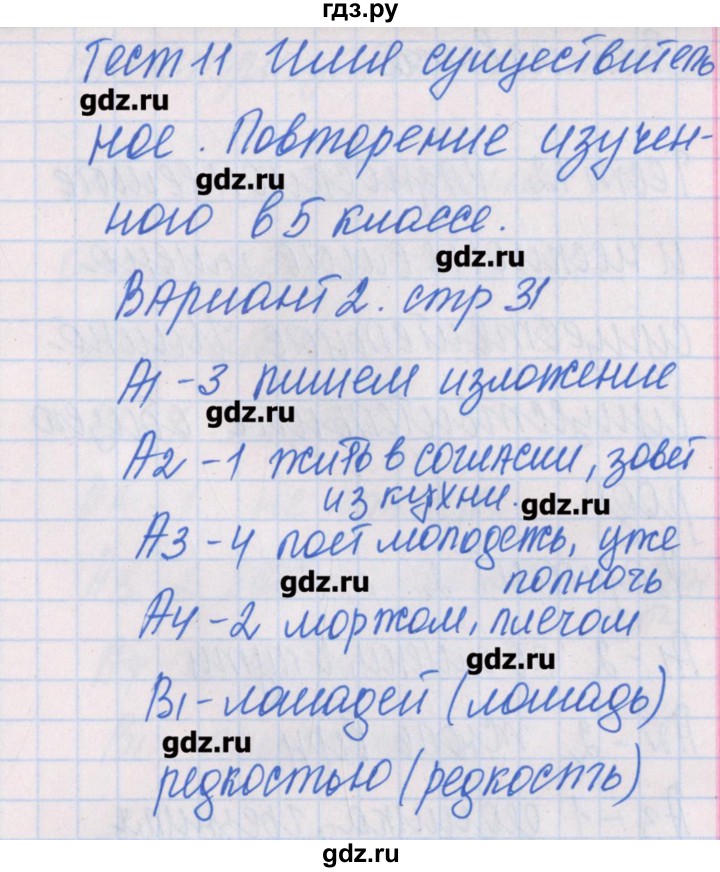 гдз.ру
Тест 11 Имя существитель
gdz.ru
ное. Повторение изучен-
gdz.ru
ного в 5 классе.
gdz.ru
Вариант 2. стр 31
А1 - 3 пишем изложение
gdz.ru
А2 - 1 жить в согласии, зовет
из кухни.
gdz.ru
А3 - 4 поет молодежь, уже
gdz.ru
полночь
А4 - 2 моржом, плечом
gdz.ru
В1 - лошадей (лошадь)
gdz.ru
редкостью (редкость)
gdz.ru